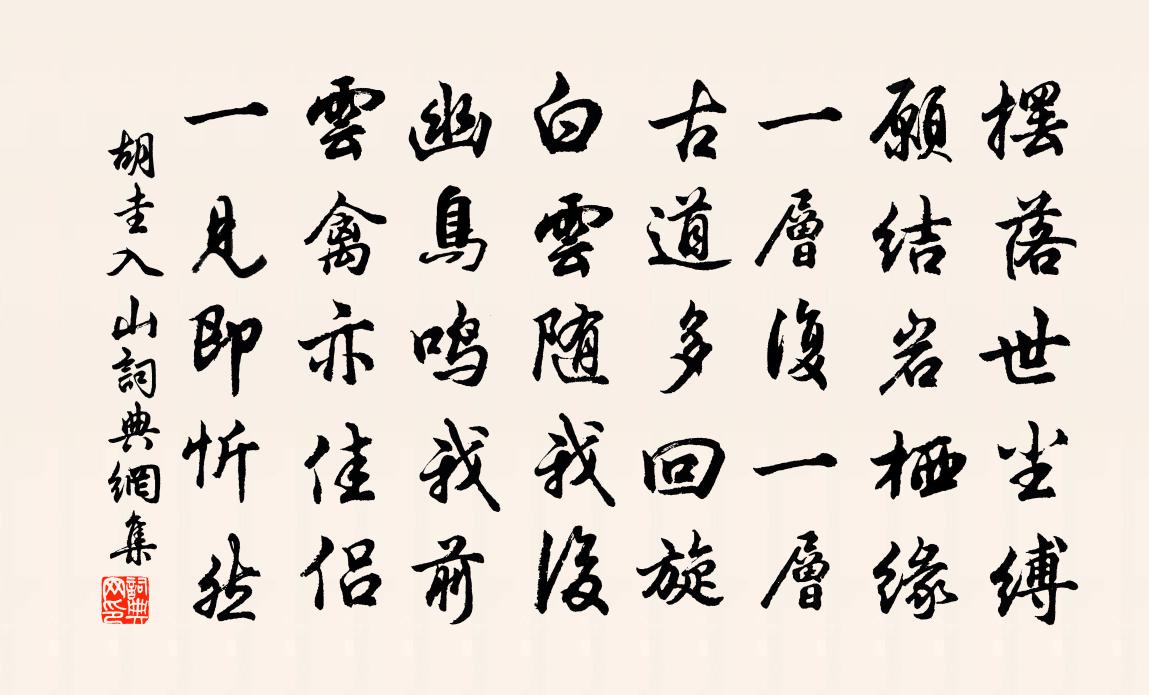 摆落世尘缚
願結岩栖缘
一層復一層
古道多回旋
白雲随我後
幽鳥鳴我前
雲禽亦佳侣
一見即忻然
胡圭入山詞典網集
詞典网印